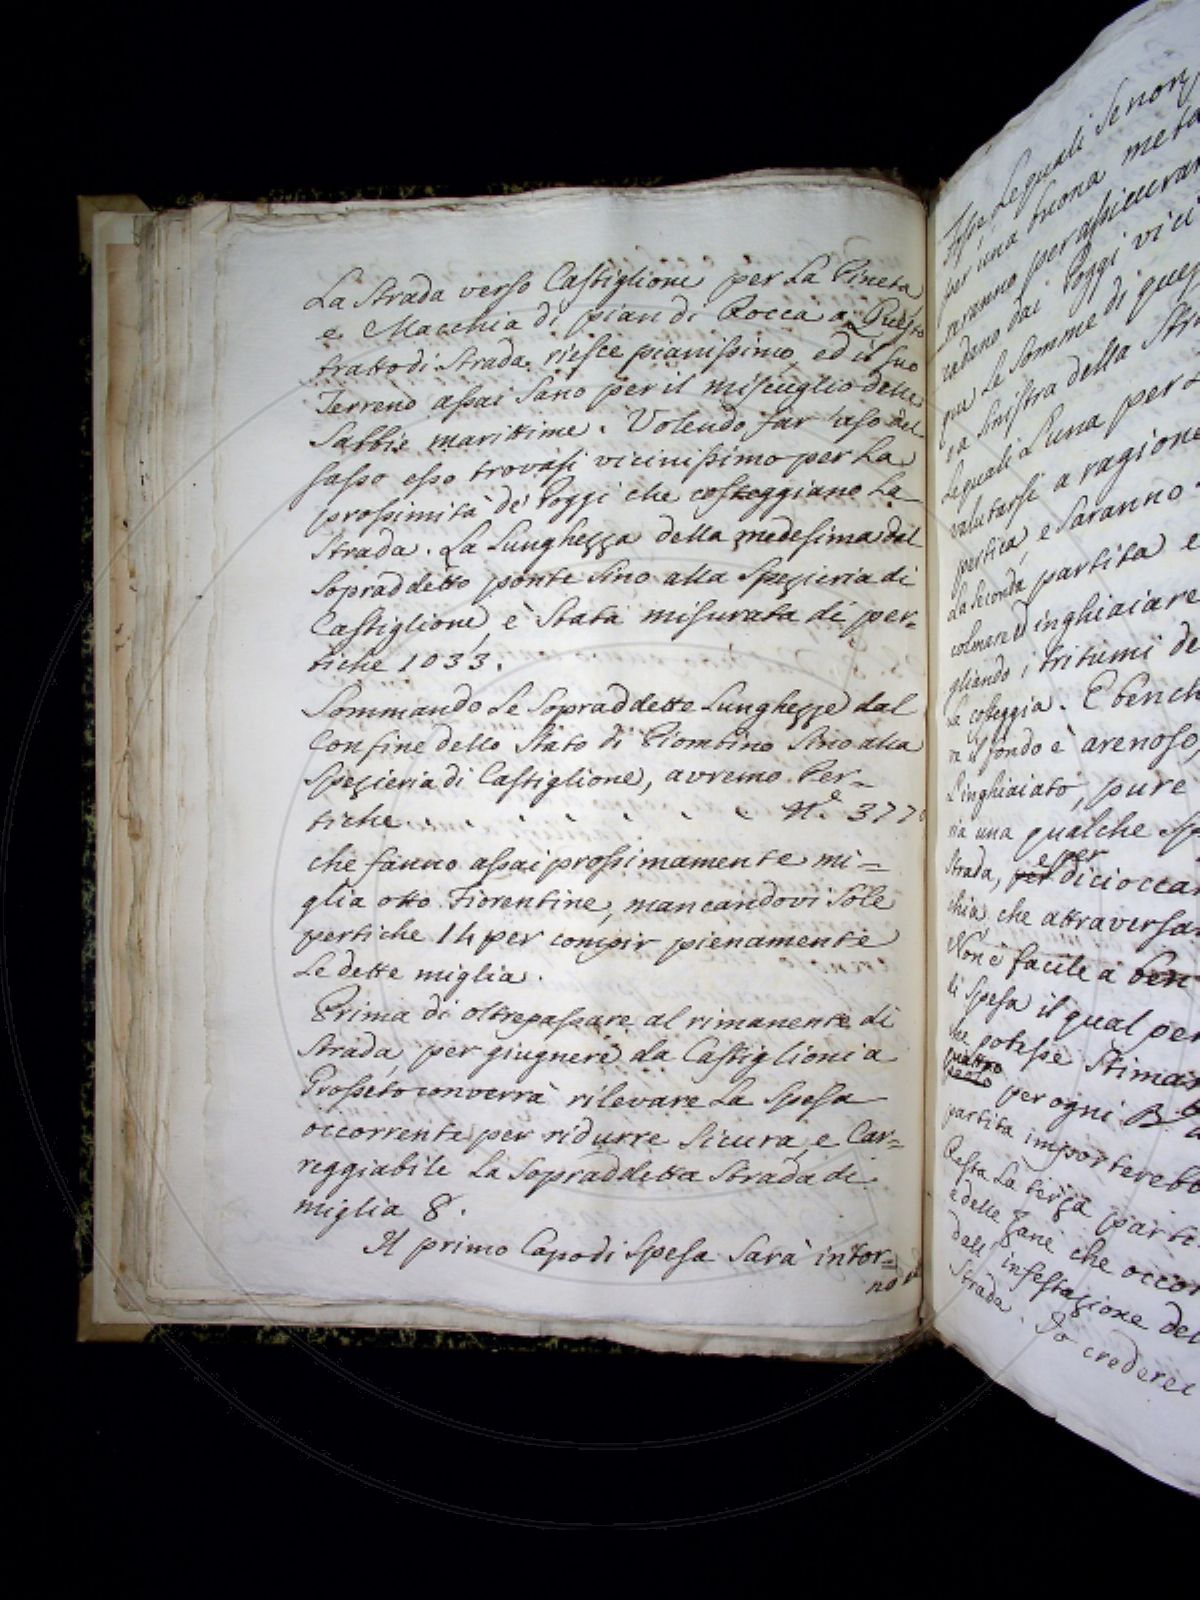 La Strada verso Castiglione per la Pineta
e Macchia di pian di Rocca a. Questo
tratto di Strada riesce pianissimo, ed il suo
Terreno assai Sano per il miscuglio delle
Sabbie marittime. Volendo far uso del
sasso esso trovasi vicinissimo per la
prossimità de' Poggi che costeggiano la
Strada. La Lunghezza della medesima dal
Sopraddetto ponte sino alla Spezieria di
Castiglione, è Stata misurata di per=
tiche 1033.
Sommando le Sopraddette Lunghezze dal
Confine dello Stato di Piombino Sino alla
Spezieria di Castiglione, avremo Per=
tiche . . . . . . . N.° 377
che fanno assai prossimamente mi=
glia otto Fiorentine, mancandovi Sole
pertiche 14 per compir pienamente
le dette miglia.
Prima di oltrepassare al rimanente di
Strada, per giugnere da Castiglioni a
Grosseto converrà rilevare la Spesa
occorrente per ridurre Sicura, e Car=
reggiabile la Sopraddetta Strada di
miglia 8.
Il primo Capo di Spesa Sarà intor=
no
Fosse le quali Se non
per una buona metà
saranno per assicurar
cadano dai Poggi vici
que le Somme di ques
e a Sinistra della Stra
le quali L'una per
valutarsi a ragione
pertica, e Saranno
La Seconda partita e
colmare ed inghiaiare
gliando i tritumi de
la costeggia. E bench
il fondo è arenoso,
L'inghiaiato, pure
ria una qualche Sp
e per
Strada, per dicioccar
chia, che attraversa
Non è facile a ben
di Spesa il qual per
che potesse Stimar
quattro
per ogni
partita importerebb
Resta la terza parti
e delle Zane che occor
dall' infestazione del
Strada. Io crederei